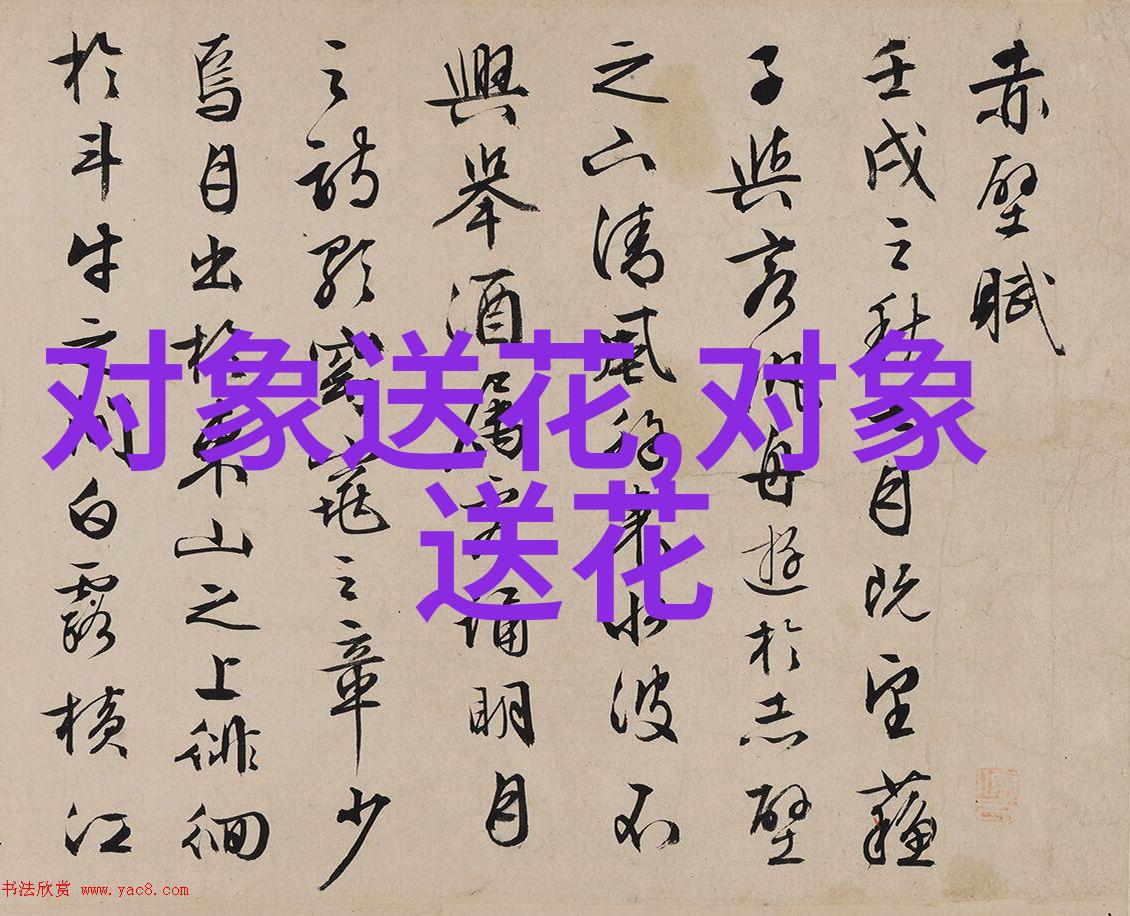 赤壁賦
壬戌之秋七月既望蘇
子與客泛舟遊於赤壁
之下清風徐來水波不
興舉酒屬客誦明月
之詩歌窈窕之章少
焉月出於東山之上徘徊
於斗牛之間白露橫江
对象送花,对象
送花
书法欣赏 www.yac8.com